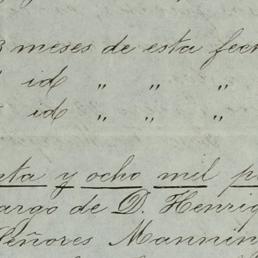 3 meses de esta fech
id " " "
id " " "
nta y ocho mil p
argo de D. Henriq
Señores Mannin